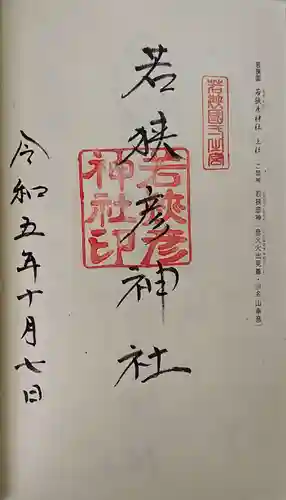 若狭國 若狭彦神社 上社 ご祭神 若狭彦神(彦火火出見尊・別名山幸彦)
若狭國一之宮
若狭彦神社
若狭彦
神社印
令和五年十月七日